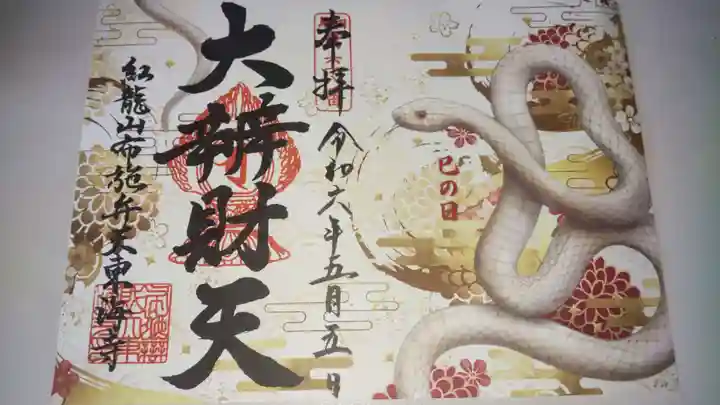 巳の日
奉拝
令和六年五月五日
大辨財天
紅龍山布施弁天東海寺